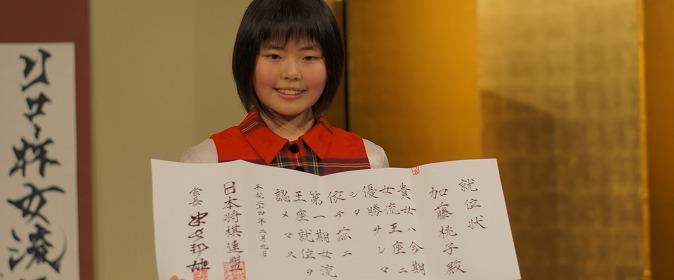 就位状
加藤桃子殿
貴女ハ今期
女流王座ニ
優勝サレマ
シタ
依テ茲ニ
第一期女流
王座就位ヲ
認メマス
平成二十四年二月九日
日本将棋連盟
会長 米長邦雄
リコー杯女流